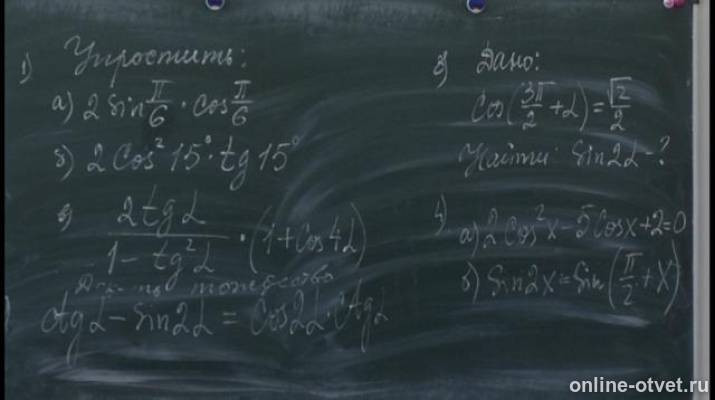 1) Упростить:
а) 2 sin π/6 · cos π/6
б) 2 Cos² 15° · tg 15°
в) 2tgα / 1 - tg²α · (1 + Cos4α)
Док-ть тождество
ctgα - Sin2α = Cos2α · Ctgα
3) Дано:
Cos(3π/2 + α) = √2/2
Найти: Sin2α - ?
4)
а) 2Cos²x - 5Cosx + 2 = 0
б) Sin2x = Sin(π/2 + x)
online-otvet.ru